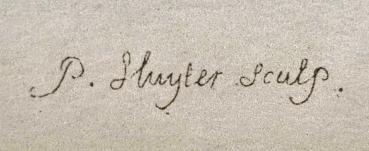 P. Sluyter Sculp.